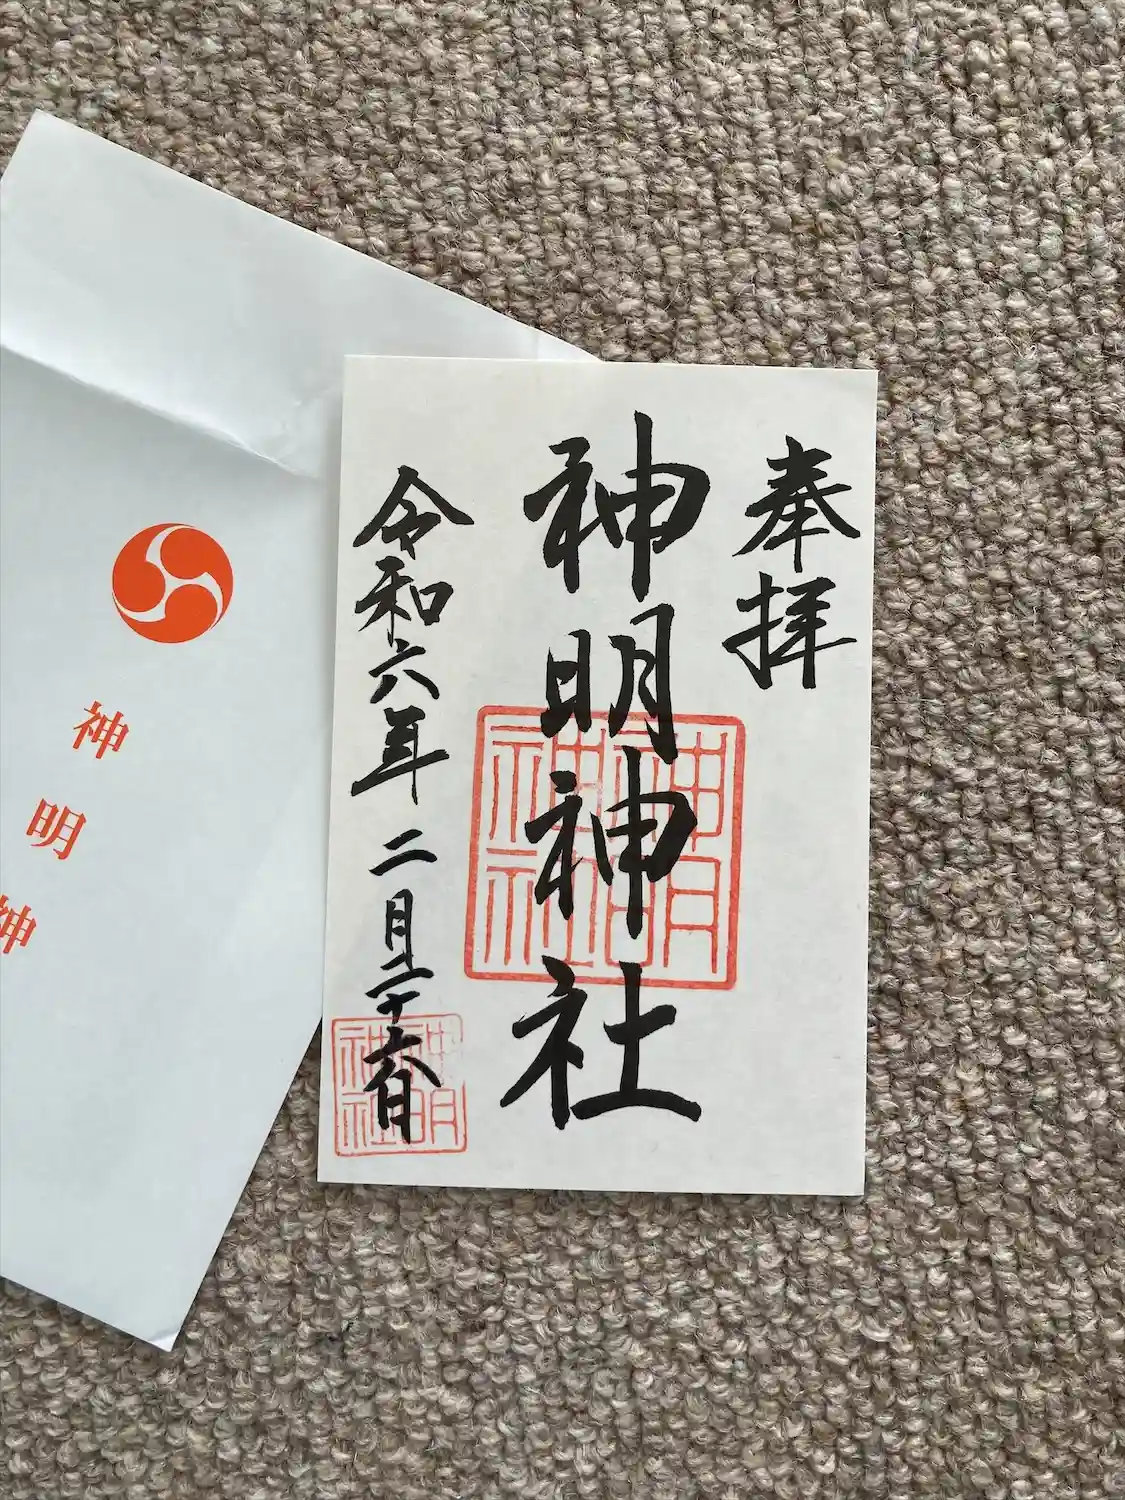 奉拝
神明神社
令和六年二月二十六日
神明神社
神明神社
神明神